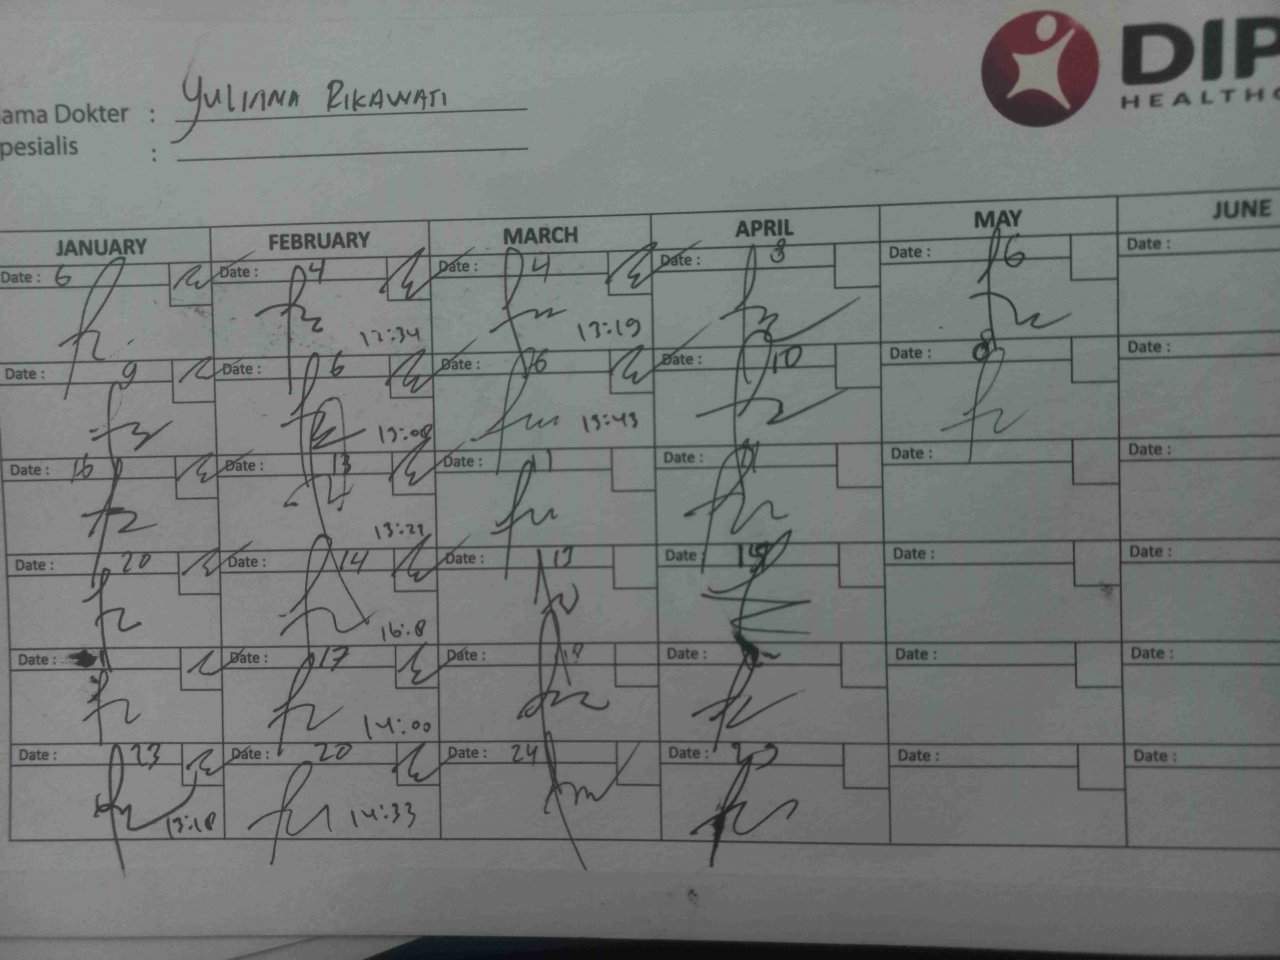 DIP
HEALTHC
ama Dokter : YULIANA RIKAWATI
pesialis :
JANUARY FEBRUARY MARCH APRIL MAY JUNE
Date : 6 Date : 4 Date : 4 Date : 3 Date : 6 Date :
12:34 13:19
Date : 9 Date : 6 Date : 6 Date : 10 Date : 8 Date :
13:08 13:43
Date : 16 Date : 13 Date : 11 Date : Date : Date :
13:21
Date : 20 Date : 14 Date : 13 Date : 15 Date : Date :
16:8
Date : Date : 17 Date : 18 Date : Date : Date :
14:00
Date : 23 Date : 20 Date : 24 Date : Date : Date :
13:18 14:33